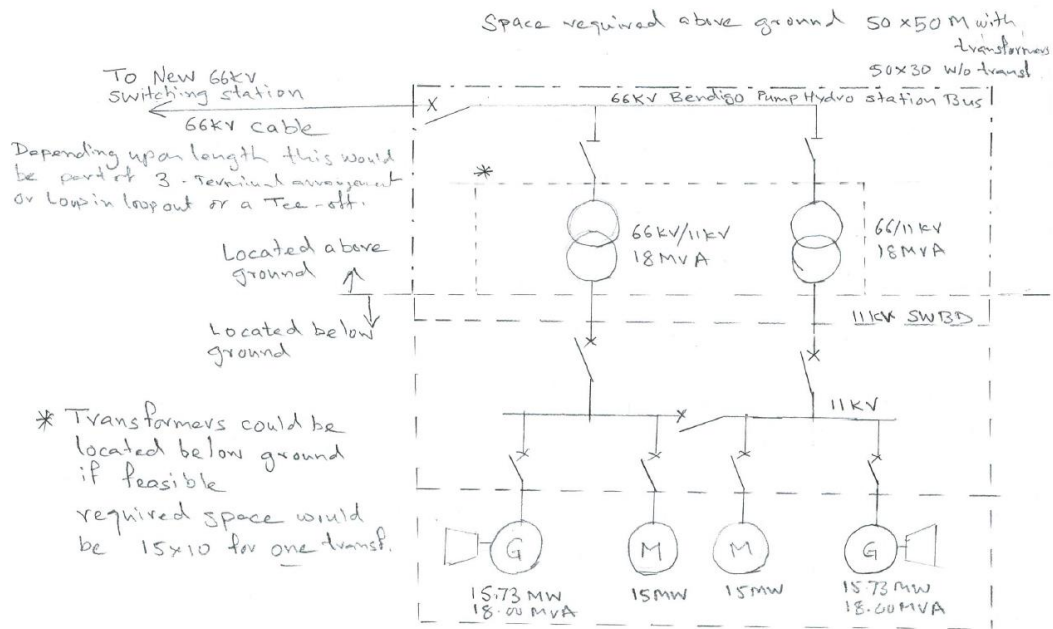 Space required above ground 50x50 M with
transformers
50x30 w/o transf
To New 66KV
switching station
66KV cable
66KV Bendigo Pump Hydro station Bus
Depending upon length this would
be part of 3-Terminal arrangement
or Loop in loop out or a Tee-off.
*
66KV/11KV
18MVA
66/11KV
18MVA
Located above
ground
Located below
ground
11KV SWBD
11KV
* Transformers could be
located below ground
if feasible
required space would
be 15x10 for one transf.
G
M
M
G
15.73 MW
18.00 MVA
15MW
15MW
15.73 MW
18.00 MVA